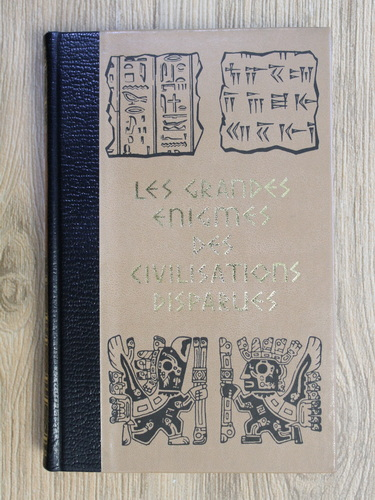 LES GRANDES
ENIGMES
DES
CIVILISATIONS
DISPARUES